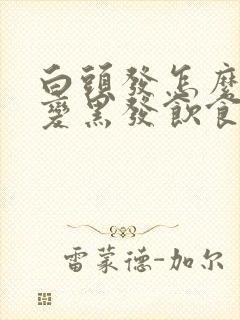 白頭發怎麼
變黑發飲食
雷蒙德-加尔